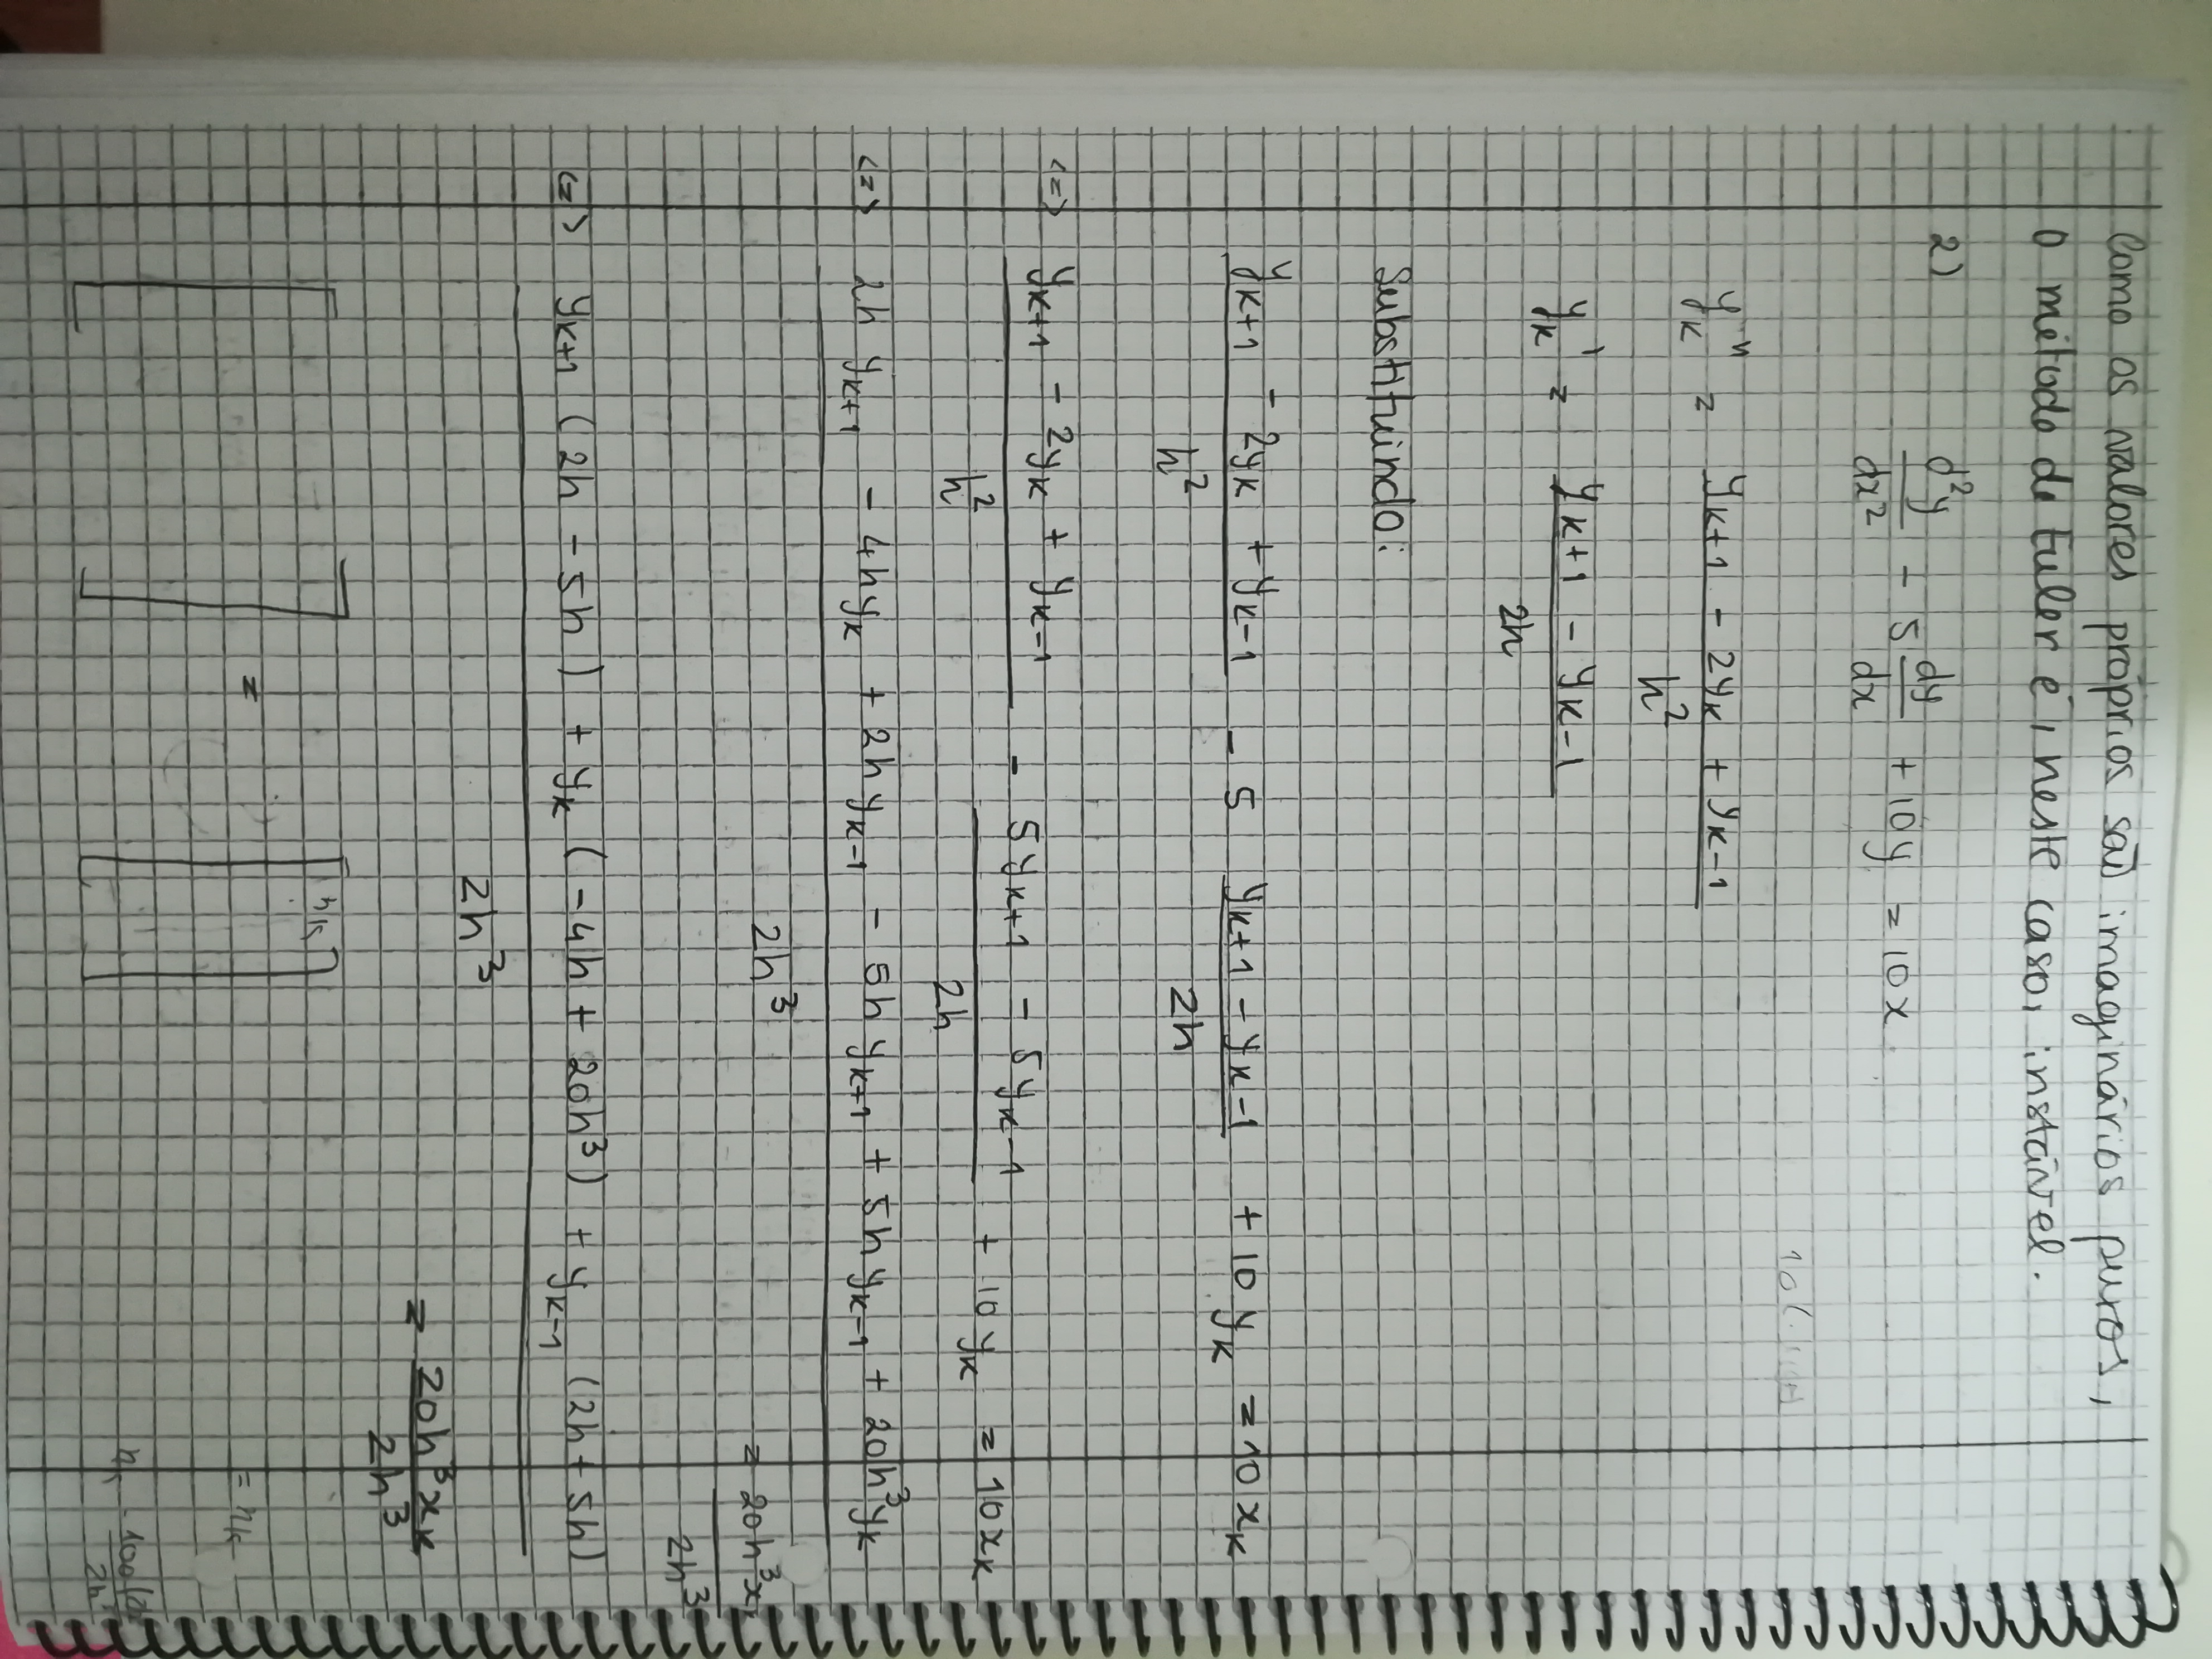 Como os valores próprios são imaginários puros,
o método de Euler é, neste caso, instável.
2) d²y/dx² - 5 dy/dx + 10y = 10x
y_k'' = (y_{k+1} - 2y_k + y_{k-1})/h²
y_k' = (y_{k+1} - y_{k-1})/2h
Substituindo:
(y_{k+1} - 2y_k + y_{k-1})/h² - 5 (y_{k+1} - y_{k-1})/2h + 10y_k = 10x_k
<=> (y_{k+1} - 2y_k + y_{k-1})/h² - (5y_{k+1} - 5y_{k-1})/2h + 10y_k = 10x_k
<=> (2h y_{k+1} - 4h y_k + 2h y_{k-1} - 5h y_{k+1} + 5h y_{k-1} + 20h³y_k)/2h³
= 20h³x_k/2h³
<=> (y_{k+1} (2h - 5h) + y_k (-4h + 20h³) + y_{k-1} (2h + 5h))/2h³
= 20h³x_k/2h³
[ ] = [ ]